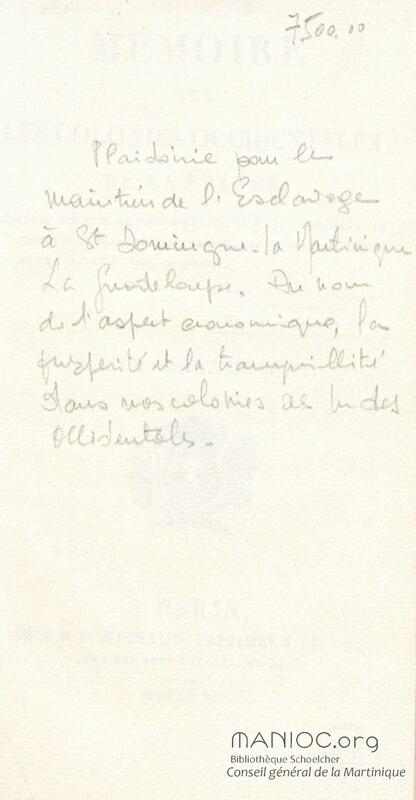 7500.00
Plaidoirie pour le
maintien de l'Esclavage
à St Domingue. la Martinique
La Guadeloupe. Au nom
de l'aspect economique, la
prosperité et la tranquillité
dans nos colonies des Indes
Occidentales.
MÉMOIRE
SUR
LES COLONIES OCCIDENTALES
DE LA FRANCE
A PARIS,
MANIOC.org
Bibliothèque Schoelcher
Conseil général de la Martinique